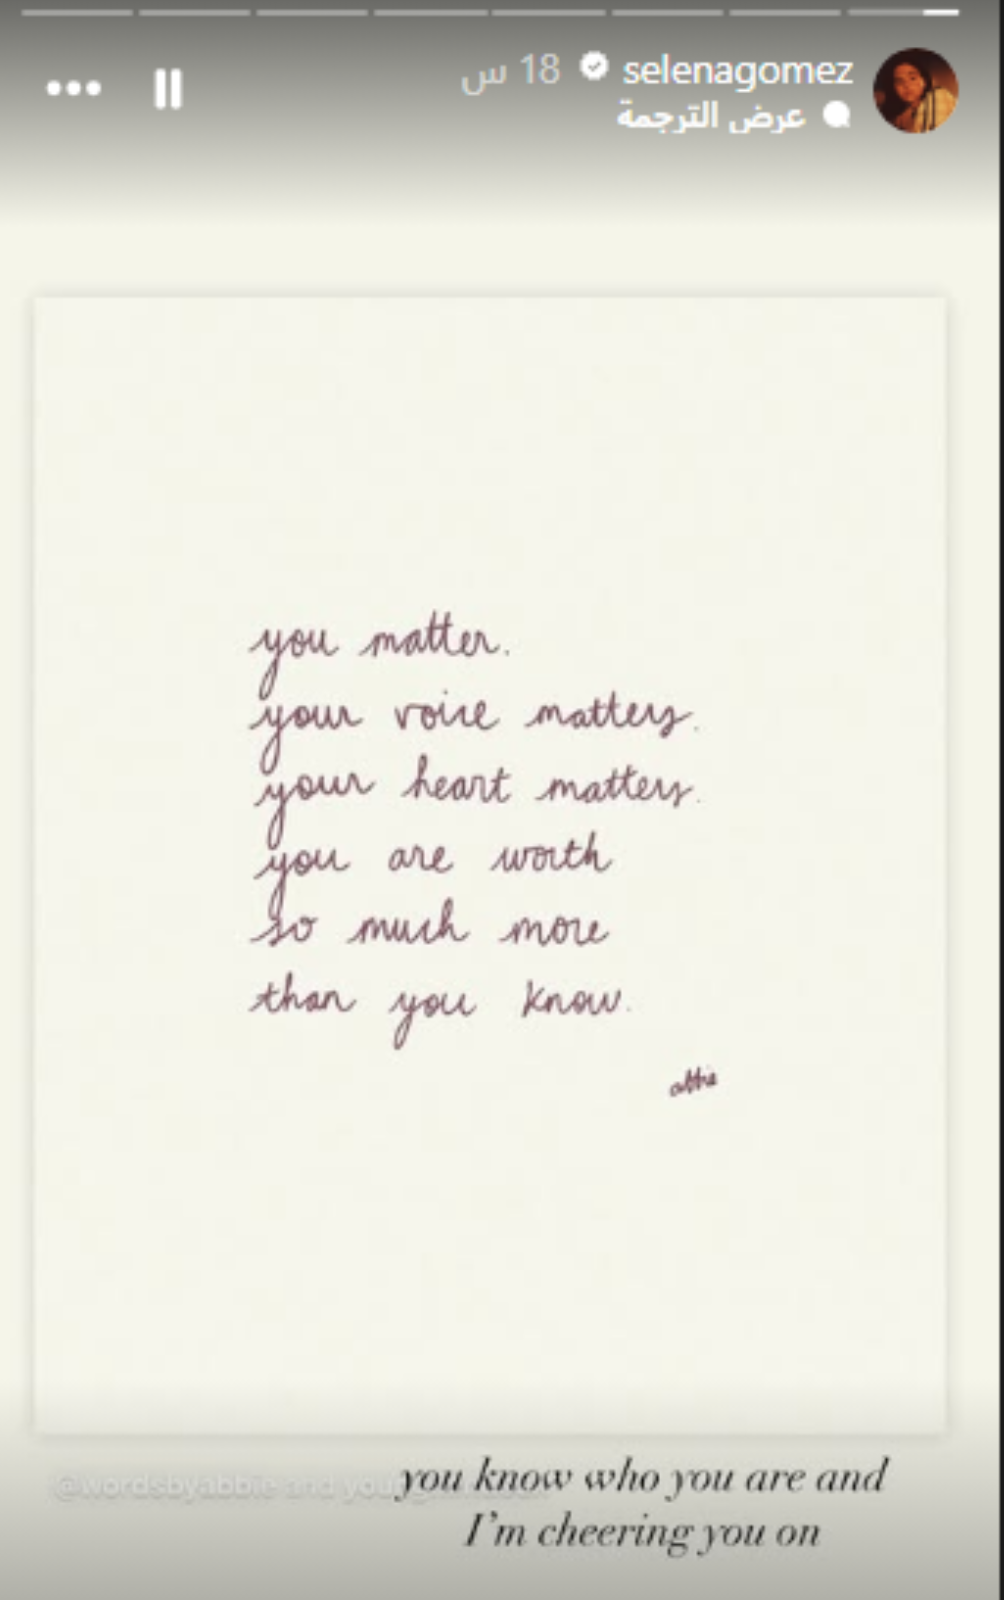 selenagomez 18 س
عرض الترجمة
you matter.
your voice matters.
your heart matters.
you are worth
so much more
than you know.
abbie
@wordsbyabbie and
you know who you are and
I'm cheering you on